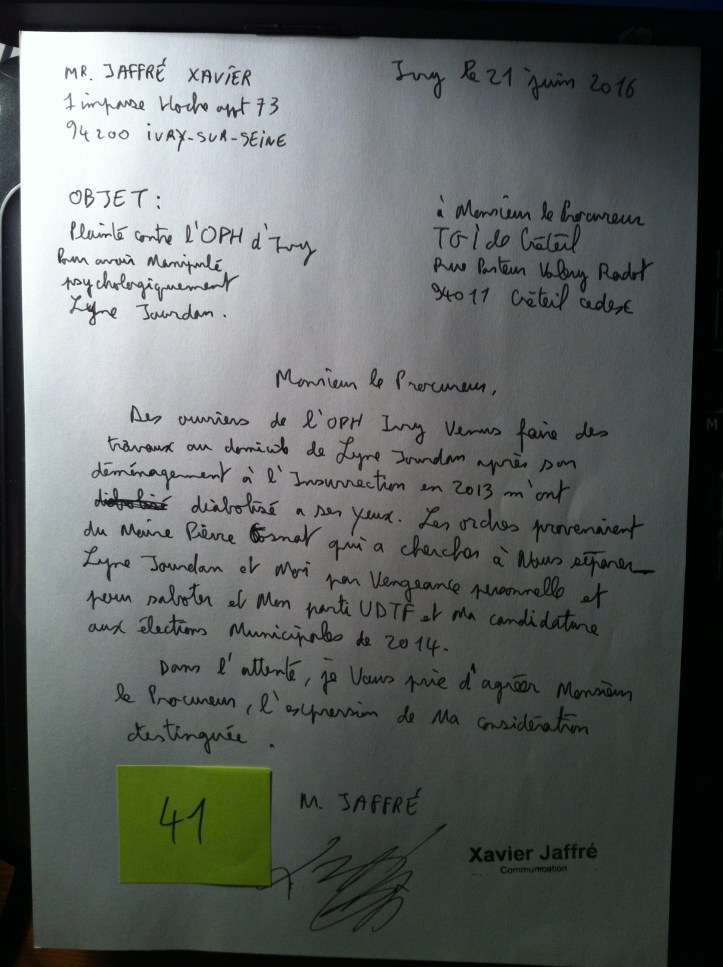 MR. JAFFRÉ XAVIER
1 impasse Hoche appt 73
94200 IVRY-SUR-SEINE
Ivry le 21 juin 2016
OBJET :
Plainte contre l'OPH d'Ivry
Pour avoir Manipulé
psychologiquement
Lyne Jourdan.
à Monsieur le Procureur
TGI de Créteil
Rue Pasteur Valery Radot
94011 Créteil cedex
Monsieur le Procureur,
Des ouvriers de l'OPH Ivry Venus faire des
travaux au domicile de Lyne Jourdan après son
déménagement à l'Insurrection en 2013 m'ont
diabolisé diabolisé a ses yeux. Les ordres provenaient
du Maire Pierre Gosnat qui a cherché à Nous séparer
Lyne Jourdan et Moi par Vengeance personnelle et
pour saboter et Mon parti UDTF et Ma candidature
aux élections Municipales de 2014.
Dans l'attente, je Vous prie d'agréer Monsieur
le Procureur, l'expression de Ma considération
distinguée.
41
M. JAFFRÉ
Xavier Jaffré
Communication